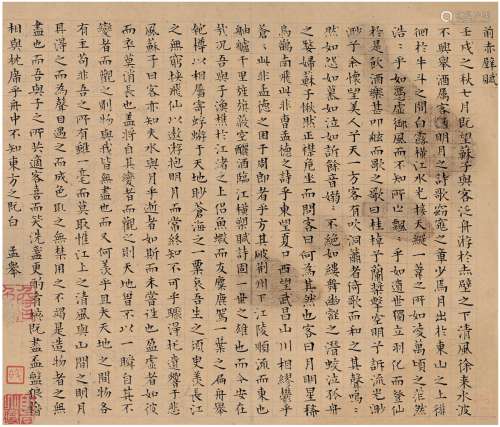 前赤壁賦
壬戌之秋七月既望蘇子與客泛舟游於赤壁之下清風徐來水波
不興舉酒屬客誦明月之詩歌窈窕之章少焉月出於東山之上徘
徊於牛斗之間白露橫江水光接天縱一葦之所如凌萬頃之茫然
浩〻乎如馮虛御風而不知所止飄〻乎如遺世獨立羽化而登仙
於是飲酒樂甚叩舷而歌之歌曰桂棹兮蘭槳擊空明兮訴流光渺
渺兮余懷望美人兮天一方客有吹洞簫者倚歌而和之其聲嗚〻
然如怨如慕如泣如訴餘音嫋〻不絕如縷舞幽壑之潛蛟泣孤舟
之嫠婦蘇子愀然正襟危坐而問客曰何為其然也客曰月明星稀
烏鵲南飛此非曹孟德之詩乎東望夏口西望武昌山川相繆鬱乎
蒼〻此非孟德之困于周郎者乎方其破荊州下江陵順流而東也
舳艫千里旌旗蔽空釃酒臨江橫槊賦詩固一世之雄也而今安在
哉况吾與子漁樵於江渚之上侶魚蝦而友麋鹿駕一葉之扁舟舉
匏樽以相屬寄蜉蝣于天地眇蒼海之一粟哀吾生之須臾羨長江
之無窮挾飛仙以遨游抱明月而長終知不可乎驟得托遺響于悲
風蘇子曰客亦知夫水與月乎逝者如斯而未嘗往也盈虛者如彼
而卒莫消長也蓋將自其變者而觀之則天地曾不以一瞬自其不
變者而觀之則物與我皆無盡也而又何羨乎且夫天地之間物各
有主苟非吾之所有雖一毫而莫取惟江上之清風與山間之明月
耳得之而為聲目遇之而成色取之無禁用之不竭是造物者之無
盡也而吾與子之所共適客喜而笑洗盞更酌肴核既盡盃盤狼藉
相與枕席乎舟中不知東方之既白 孟攀